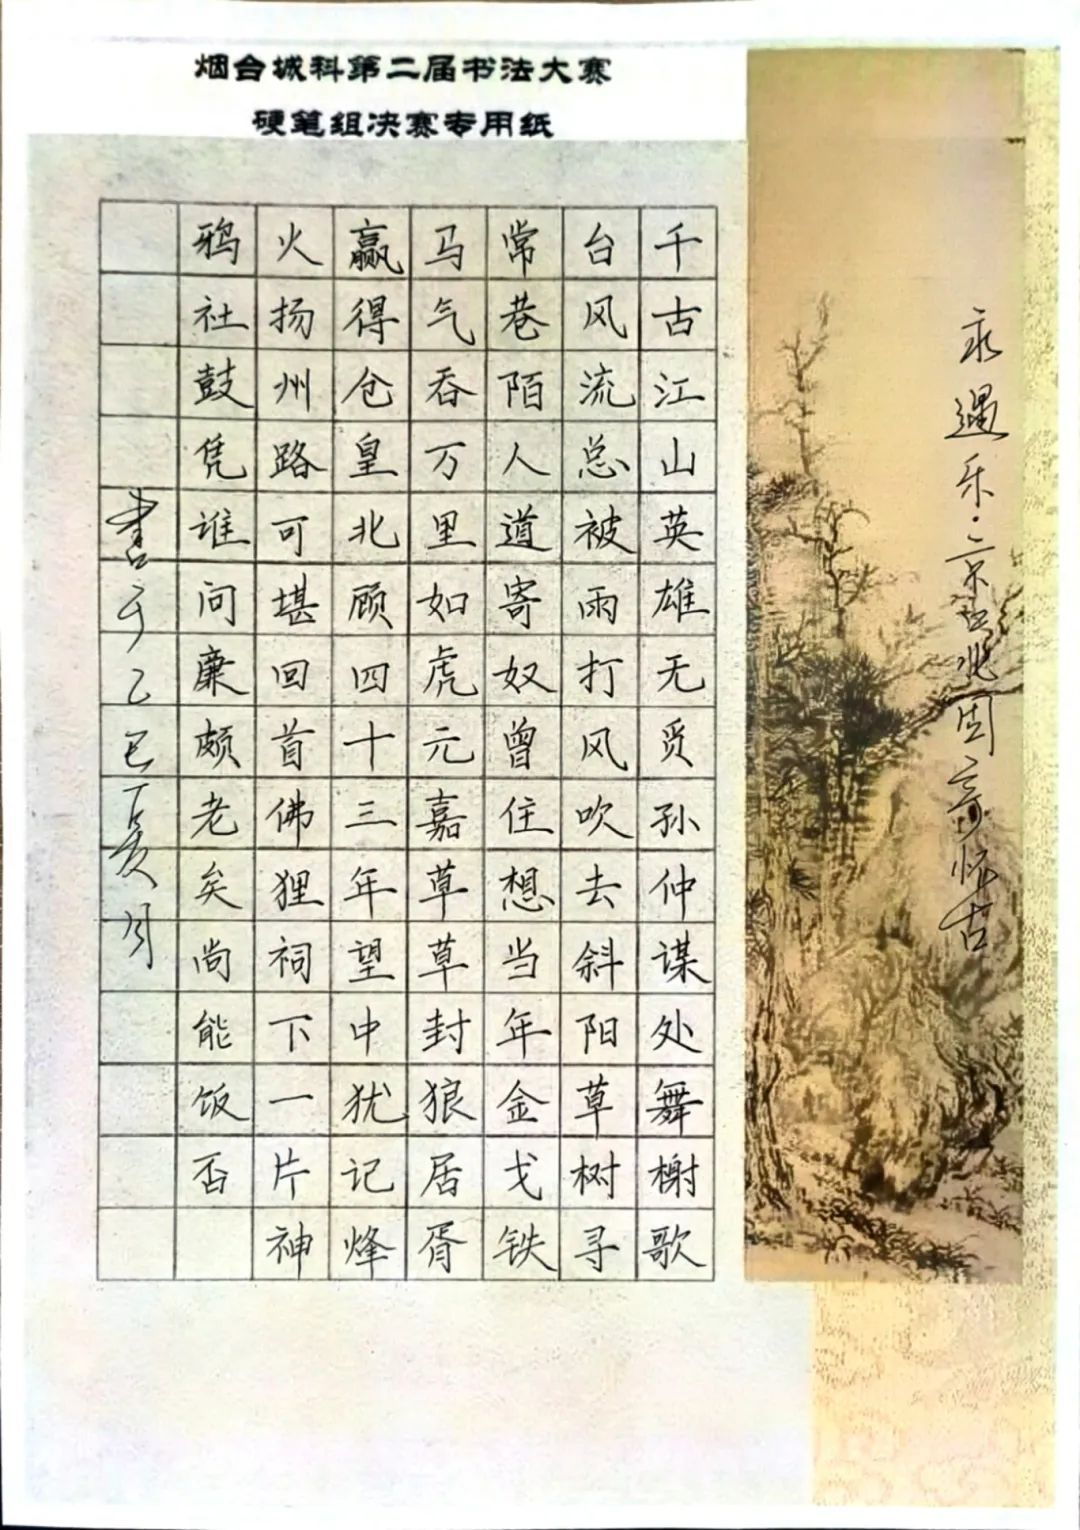 烟台城科第二届书法大赛
硬笔组决赛专用纸
永遇乐·京口北固亭怀古
千古江山英雄无觅孙仲谋处舞榭歌
台风流总被雨打风吹去斜阳草树寻
常巷陌人道寄奴曾住想当年金戈铁
马气吞万里如虎元嘉草草封狼居胥
赢得仓皇北顾四十三年望中犹记烽
火扬州路可堪回首佛狸祠下一片神
鸦社鼓凭谁问廉颇老矣尚能饭否
书于乙巳夏月